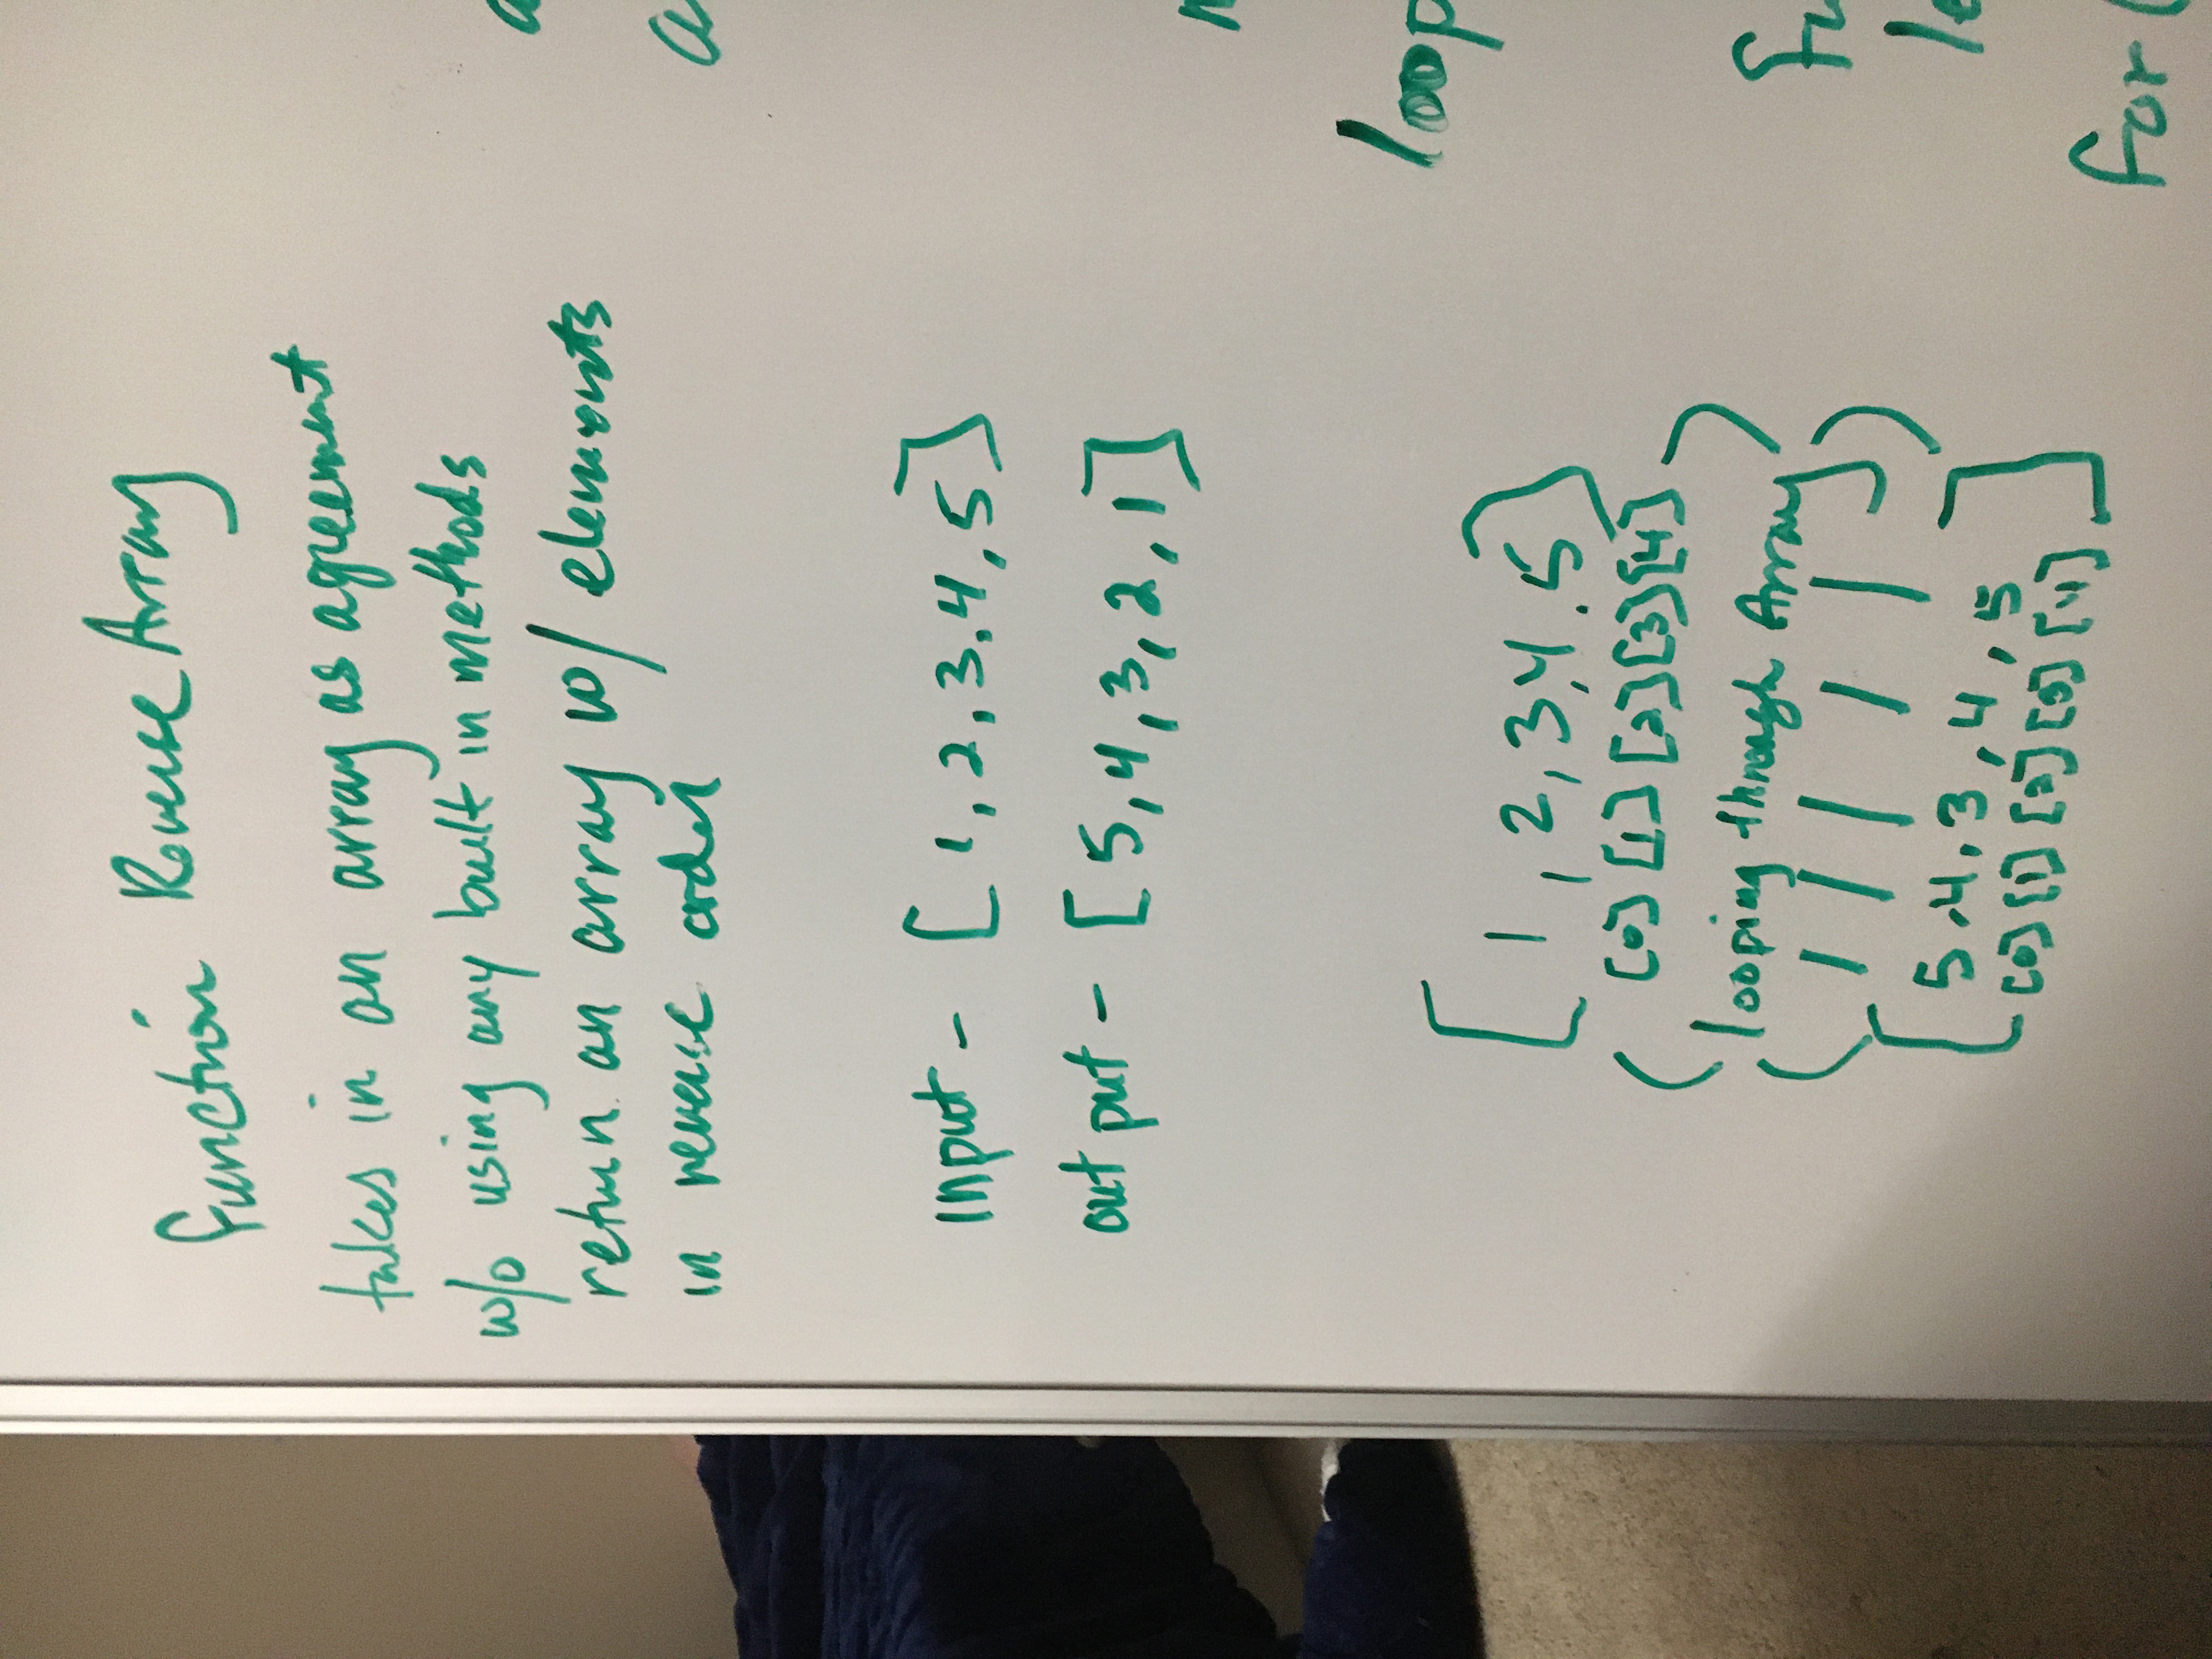 function Reverse Array
takes in an array as agreement
w/o using any built in methods
return an array w/ elements
in reverse order
input - [ 1, 2, 3, 4, 5]
out put - [ 5, 4, 3, 2, 1]
[ 1, 2, 3, 4, 5]
[0] [1] [2] [3] [4]
looping through Array
[ 5, 4, 3, 4, 5 ]
[0] [1] [2] [3] [4]
loop
for (